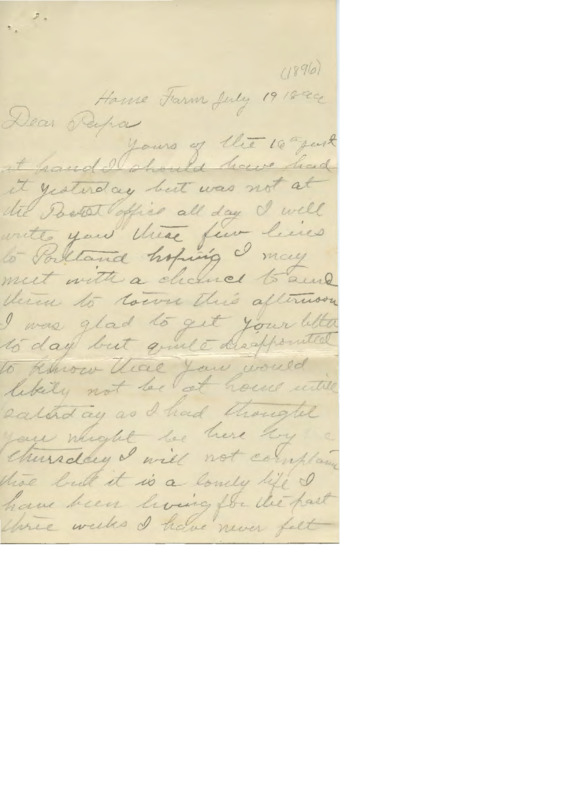 (1896)
Home Farm July 19
Dear Papa
Yours of the just
at hand I should have had
it yesterday but was not at
the Postoffice all day I will
write you these few lines
to Portland hoping I may
meet with a chance to send
them to town this afternoon
I was glad to get your letter
to day but quite disappointed
to know that you would
likely not be at home until
as I had thought
you might be here by
thursday I will not complain
but it is a lonely life I
have been living for the past
three weeks I have never felt